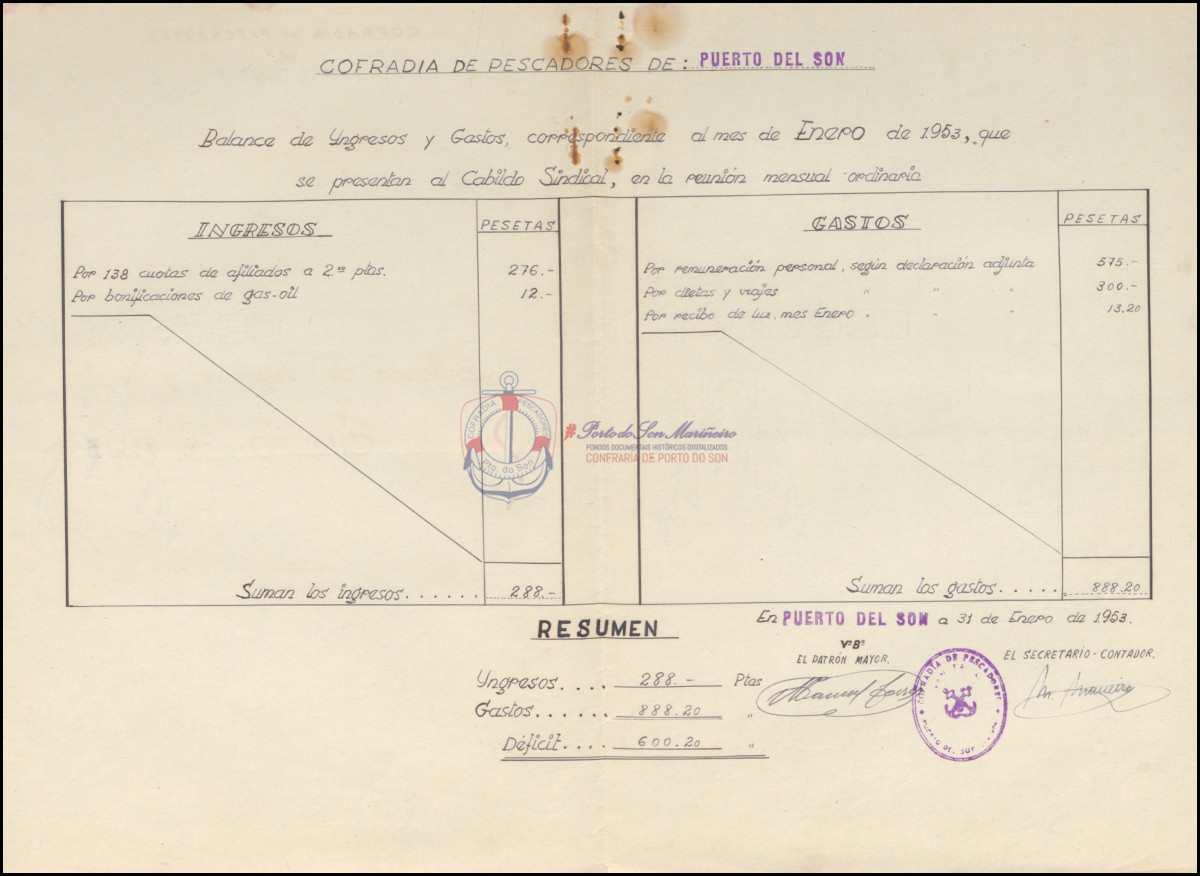 COFRADIA DE PESCADORES DE: PUERTO DEL SON
Balance de Yngresos y Gastos, correspondiente al mes de Enero de 1.953, que
se presentan al Cabildo Sindical, en la reunión mensual ordinaria
INGRESOS
PESETAS
Por 138 cuotas de afiliados a 2'= ptas.
276.-
Por bonificaciones de gas-oil
12.-
Suman los ingresos. . . . . .
288.-
GASTOS
PESETAS
Por remuneración personal, según declaración adjunta
575.-
Por dietas y viajes " " "
300.-
Por recibo de luz, mes Enero " " "
13,20
Suman los gastos. . . . .
888.20
COFRADIA PESCADORES
Pto. do Son
#Porto do Son Mariñeiro
FONDOS DOCUMENTAIS HISTÓRICOS DIGITALIZADOS
CONFRARÍA DE PORTO DO SON
En PUERTO DEL SON a 31 de Enero de 1953.
RESUMEN
Yngresos. . . . 288.- Ptas
Gastos. . . . . . 888.20 "
Déficit. . . . 600.20 "
VºBº
EL DATRÓN MAYOR,
Manuel
COFRADIA DE PESCADORES
PUERTO DEL SON
EL SECRETARIO-CONTADOR,